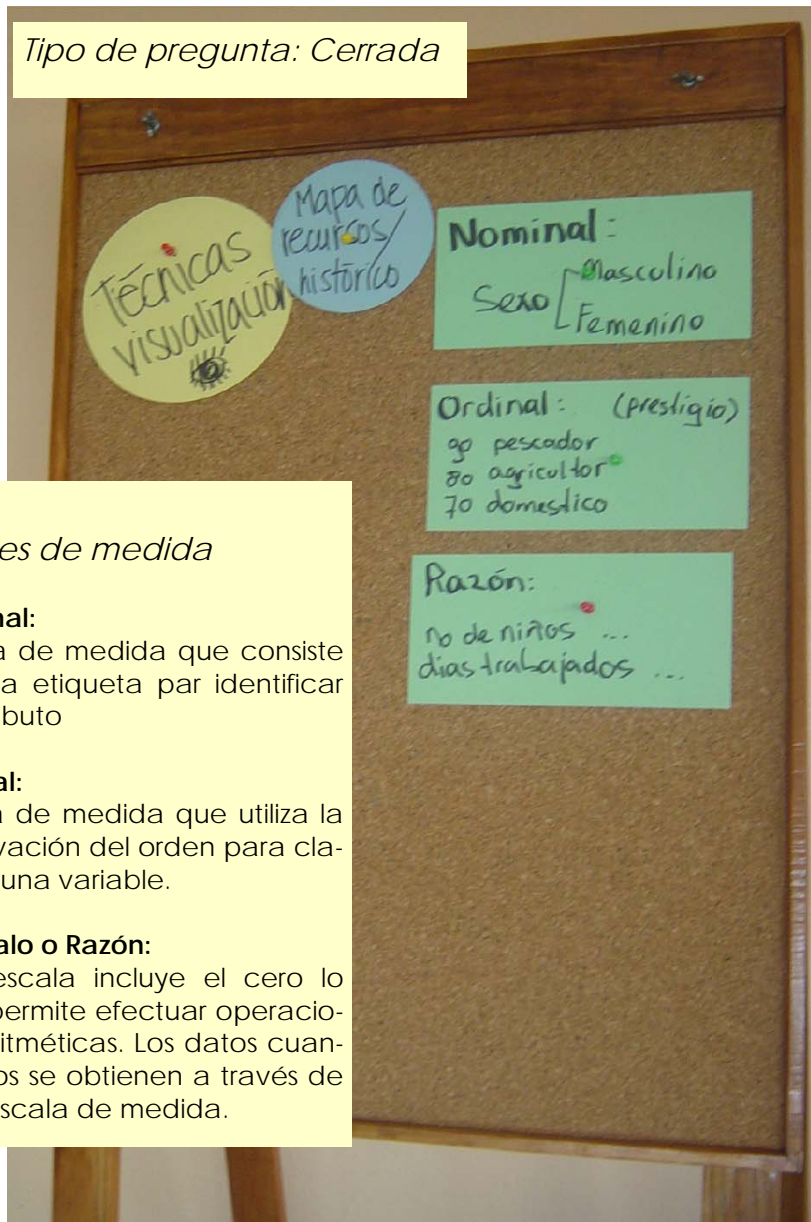 Tipo de pregunta: Cerrada
Técnicas
visualización
Mapa de
recursos/
histórico
Nominal:
Sexo
Masculino
Femenino
Ordinal: (prestigio)
90 pescador
80 agricultor
70 domestico
Razón:
no de niños ...
dias trabajados ...
es de medida
nal:
a de medida que consiste
a etiqueta par identificar
buto
al:
a de medida que utiliza la
vación del orden para cla-
una variable.
alo o Razón:
escala incluye el cero lo
permite efectuar operacio-
itméticas. Los datos cuan-
os se obtienen a través de
scala de medida.